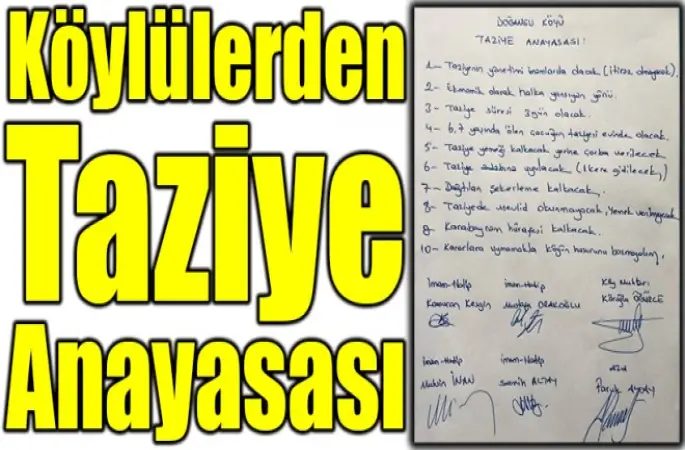 Köylülerden
Taziye
Anayasası
DOĞANSU KÖYÜ
TAZİYE ANAYASASI:
1- Taziyenin yönetimi imamlarda olacak (itiraz olmayacak).
2- Ekonomik olarak halka yansıyan yönü.
3- Taziye süresi 3 gün olacak.
4- 6,7 yaşında ölen çocuğun taziyesi evinde olacak.
5- Taziye yemeği kalkacak yerine çorba verilecek
6- Taziye adabına uyulacak (1 kere gidilecek)
7- Dağıtılan şekerleme kalkacak,
8- Taziyede mevlid okunmayacak, yemek verilmeyecek
9- Karabayram hurafesi kalkacak.
10- Kararlara uymamakla köyün huzurunu bozmayalım,
imam-Hatip imam-Hatip Köy Muhtarı
Kamuran Keskin Mustafa
imam-Hatip imam-Hatip aza
Muhsin İNAN Semih ALTAY Faruk